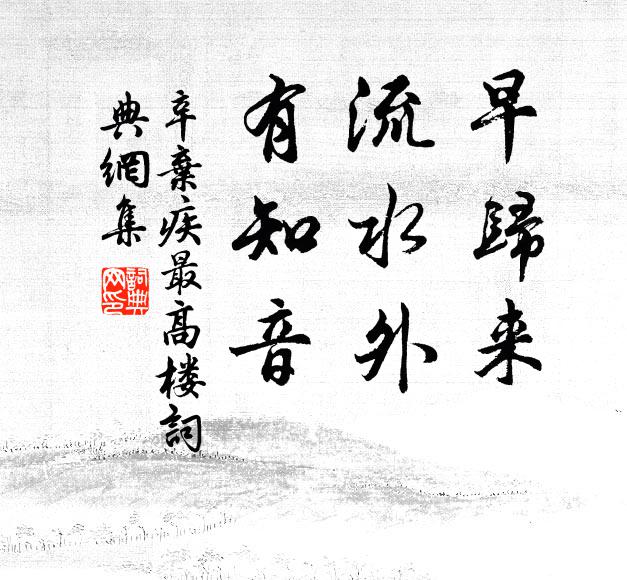 早歸来
流水外
有知音
辛棄疾最高楼詞
典網集
詞典网印